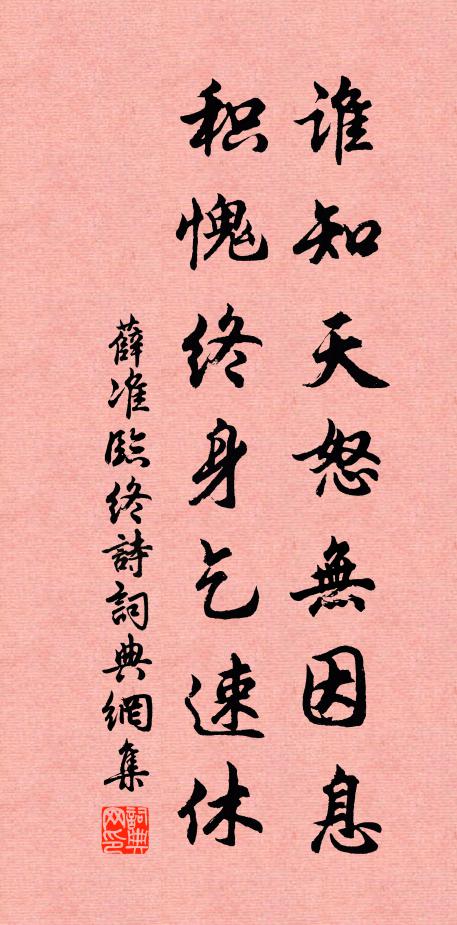 谁知天怒無因息
积愧終身乞速休
薛准臨終詩詞典網集
詞典网印